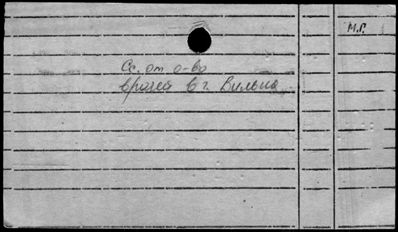 М.Г.
Сс. от о-ва
врачей в г. Вильна